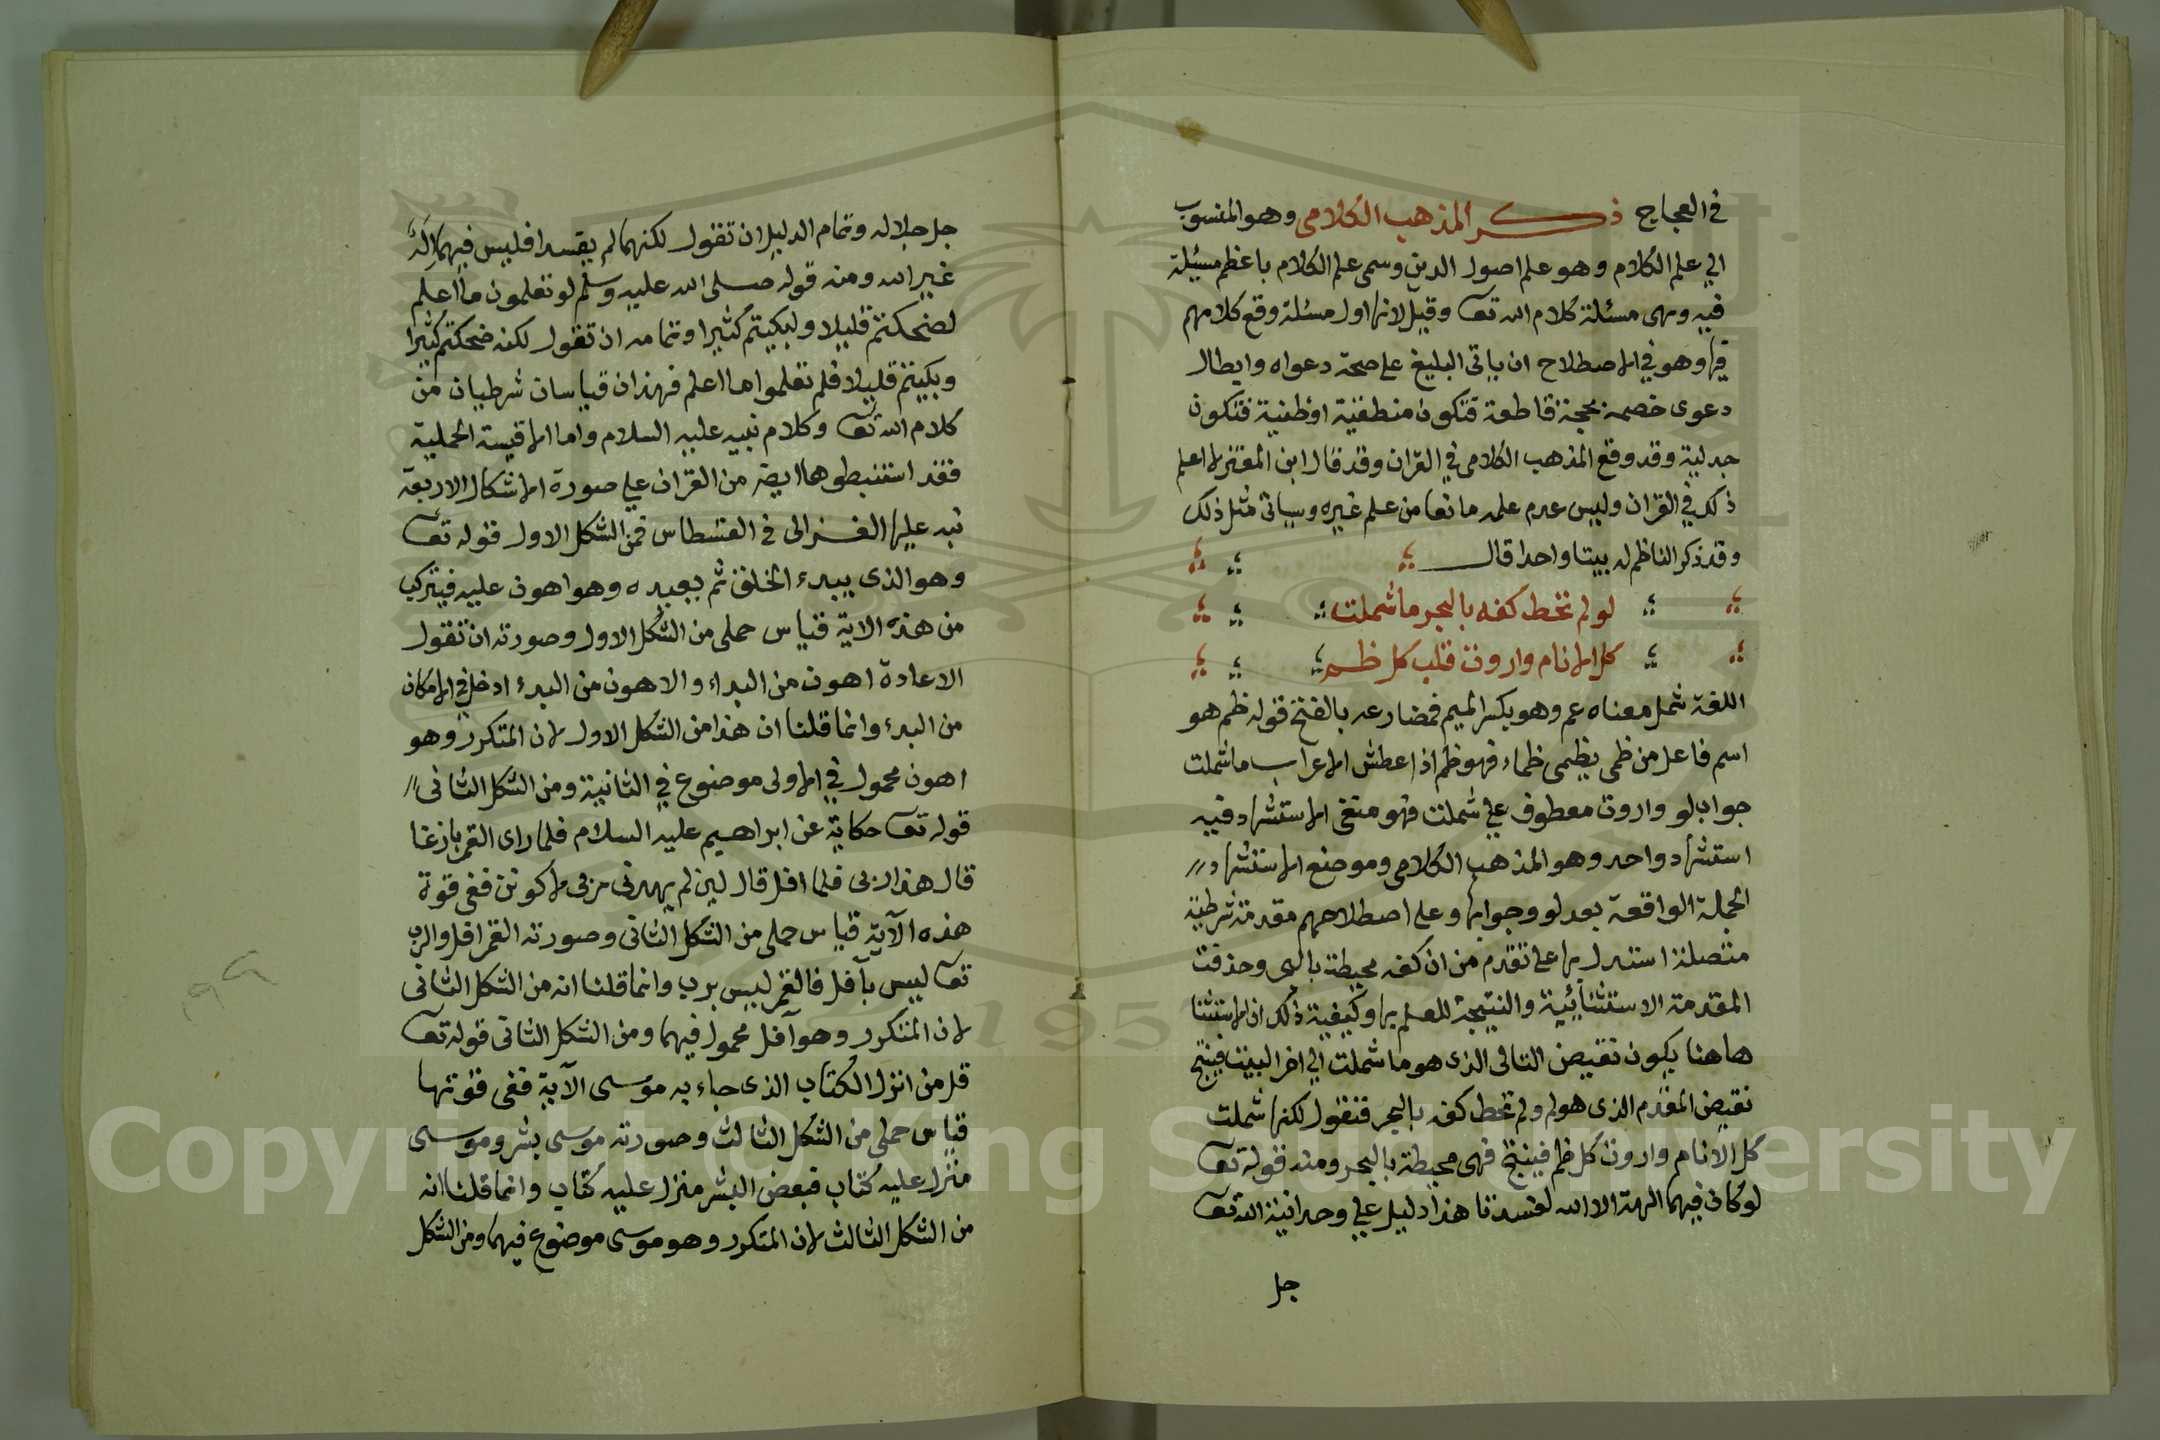 في العجاج ذكر المذهب الكلامي وهو المنسوب
الي علم الكلام وهو علم اصول الدين وسمى علم الكلام باعظم مسئلة
فيه وهي مسئلة كلام الله تعا وقيل لانها اول مسئلة وقع كلامهم
فيها وهو في الاصطلاح ان ياتي البليغ على صحة دعواه وابطال
دعوى خصمه بحجة قاطعة فتكون منطقية او ظنية فتكون
جدلية وقد وقع المذهب الكلامي في القران وقد قال ابن المعتز لا اعلم
ذلك في القران وليس عدم علمه مانعا من علم غيره وسياتي مثل ذلك
وقد ذكر الناظم له بيتا واحدا قال
لو لم تحط كفه بالبحر ما شملت
كل الانام واروت قلب كل ظم
اللغة شمل معناه عم وهو بكسر الميم فمضارعه بالفتح قوله ظم هو
اسم فاعل من ظمى يظمى ظماء فهو ظم اذا عطش الاعراب ما شملت
جواب لو واروت معطوف على شملت فهو منفي الاستشهاد فيه
استشهاد واحد وهو المذهب الكلامي وموضع الاستشهاد
الجملة الواقعة بعد لو وجوابها وعلى اصطلاحهم مقدمة شرطية
متصلة استدل بها على تقدم من ان كفه محيطة بالبحر وحذفت
المقدمة الاستثنائية والنتيجة للعلم بها وكيفية ذلك ان الاستثنا
هاهنا يكون نقيض التالى الذى هو ما شملت الي اخر البيت فينتج
نقيض المقدم الذى هو لم ولم تحط كفه بالبحر فنقول لكنها شملت
كل الانام واروت كل ظم فينتج فهى محيطة بالبحر ومنه قوله تعا
لو كان فيهما الهة الا الله لفسدتا هذا دليل على وحدانية الله تعا
جل
جل جلاله وتمام الدليل ان تقول لكنهما لم يفسدا فليس فيهما اله
غير الله ومنه قوله صلى الله عليه وسلم لو تعلمون ما اعلم
لضحكتم قليلا ولبكيتم كثيرا وتمامه ان تقول لكنه ضحكتم كثيرا
وبكيتم قليلا فلم تعلموا ما اعلم فهذان قياسان شرطيان من
كلام الله تعا وكلام نبيه عليه السلام واما الاقيسة الحملية
فقد استنبطوها ايضا من القران على صورة الاشكال الاربعة
نبه عليها الغزالى في القسطاس فمن الشكل الاول قوله تعا
وهو الذى يبدء الخلق ثم يعيده وهو اهون عليه فيتركب
من هذه الاية قياس حملى من الشكل الاول وصورته ان تقول
الاعادة اهون من البداء والاهون من البدء ادخل في الامكان
من البدء وانما قلنا ان هذا من الشكل الاول لان المتكرر وهو
اهون محمول في الاولى موضوع في الثانية ومن الشكل الثانى
قوله تعا حكاية عن ابراهيم عليه السلام فلما راى القمر بازغا
قال هذا ربى فلما افل قال لين لم يهدنى ربى لاكونن ففى قوة
هذه الآية قياس حملى من الشكل الثانى وصورته القمر افل والرب
تعا ليس بآفل فالقمر ليس برب وانما قلنا انه من الشكل الثانى
لان المتكرر وهو آفل محمول فيهما ومن الشكل الثانى قوله تعا
قل من انزل الكتاب الذى جاء به موسى الآية ففى قوتها
قياس حملى من الشكل الثالث وصورته موسى بشر وموسى
منزل عليه كتاب فبعض البشر منزل عليه كتاب وانما قلنا انه
من الشكل الثالث لان المتكرر وهو موسى موضوع فيهما ومن الشكل
Copyright © King Saud University